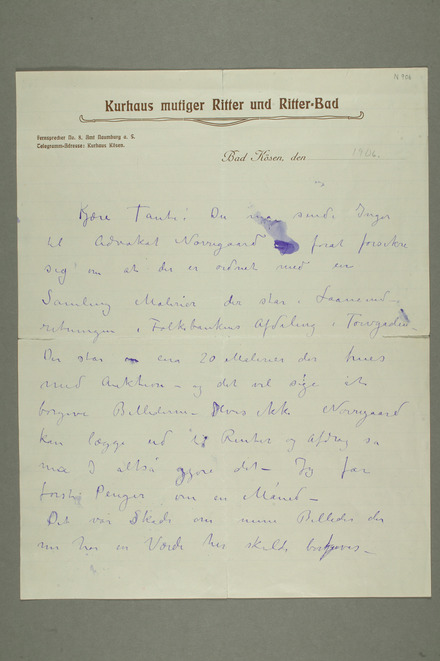 N 906
Kurhaus mutiger Ritter und Ritter-Bad
Fernsprecher No. 8. Amt Naumburg a. S.
Telegramm-Adresse: Kurhaus Kösen.
Bad Kösen, den 1906.
Kjære Tante! Du må sende Inger
til Advokat Nørregaard forat forsikre
sig om at der er ordnet med en
Samling Malerier der står i Laaneind-
retningen i Folkebankens Afdeling i Torvgaden
Der står circa 20 Malerier der trues
med Auktion – og det vil sige at
bortgive Billederne – Hvis ikke Nørregaard
kan lægge ud til Renter og Afdrag så
må I altså gjøre det – Jeg får
først Penger om en Måned –
Det var Skade om mine Billeder der
nu har en Værdi her skulde bortgives –